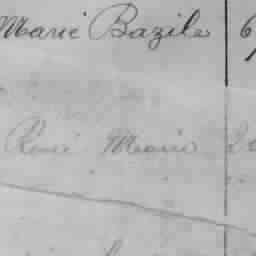 Marie Bazile 6
René Marie 2